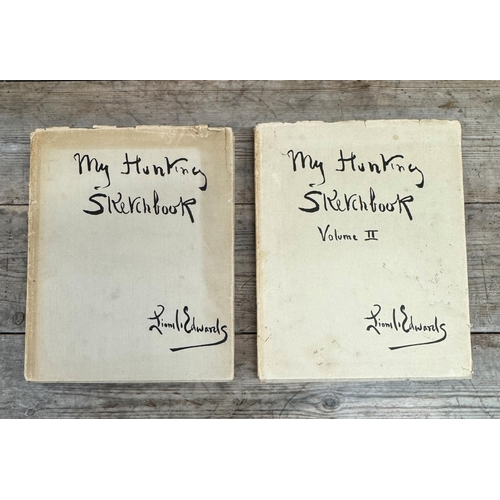 My Hunting
Sketchbook
Lionel Edwards
My Hunting
Sketchbook
Volume II
Lionel Edwards